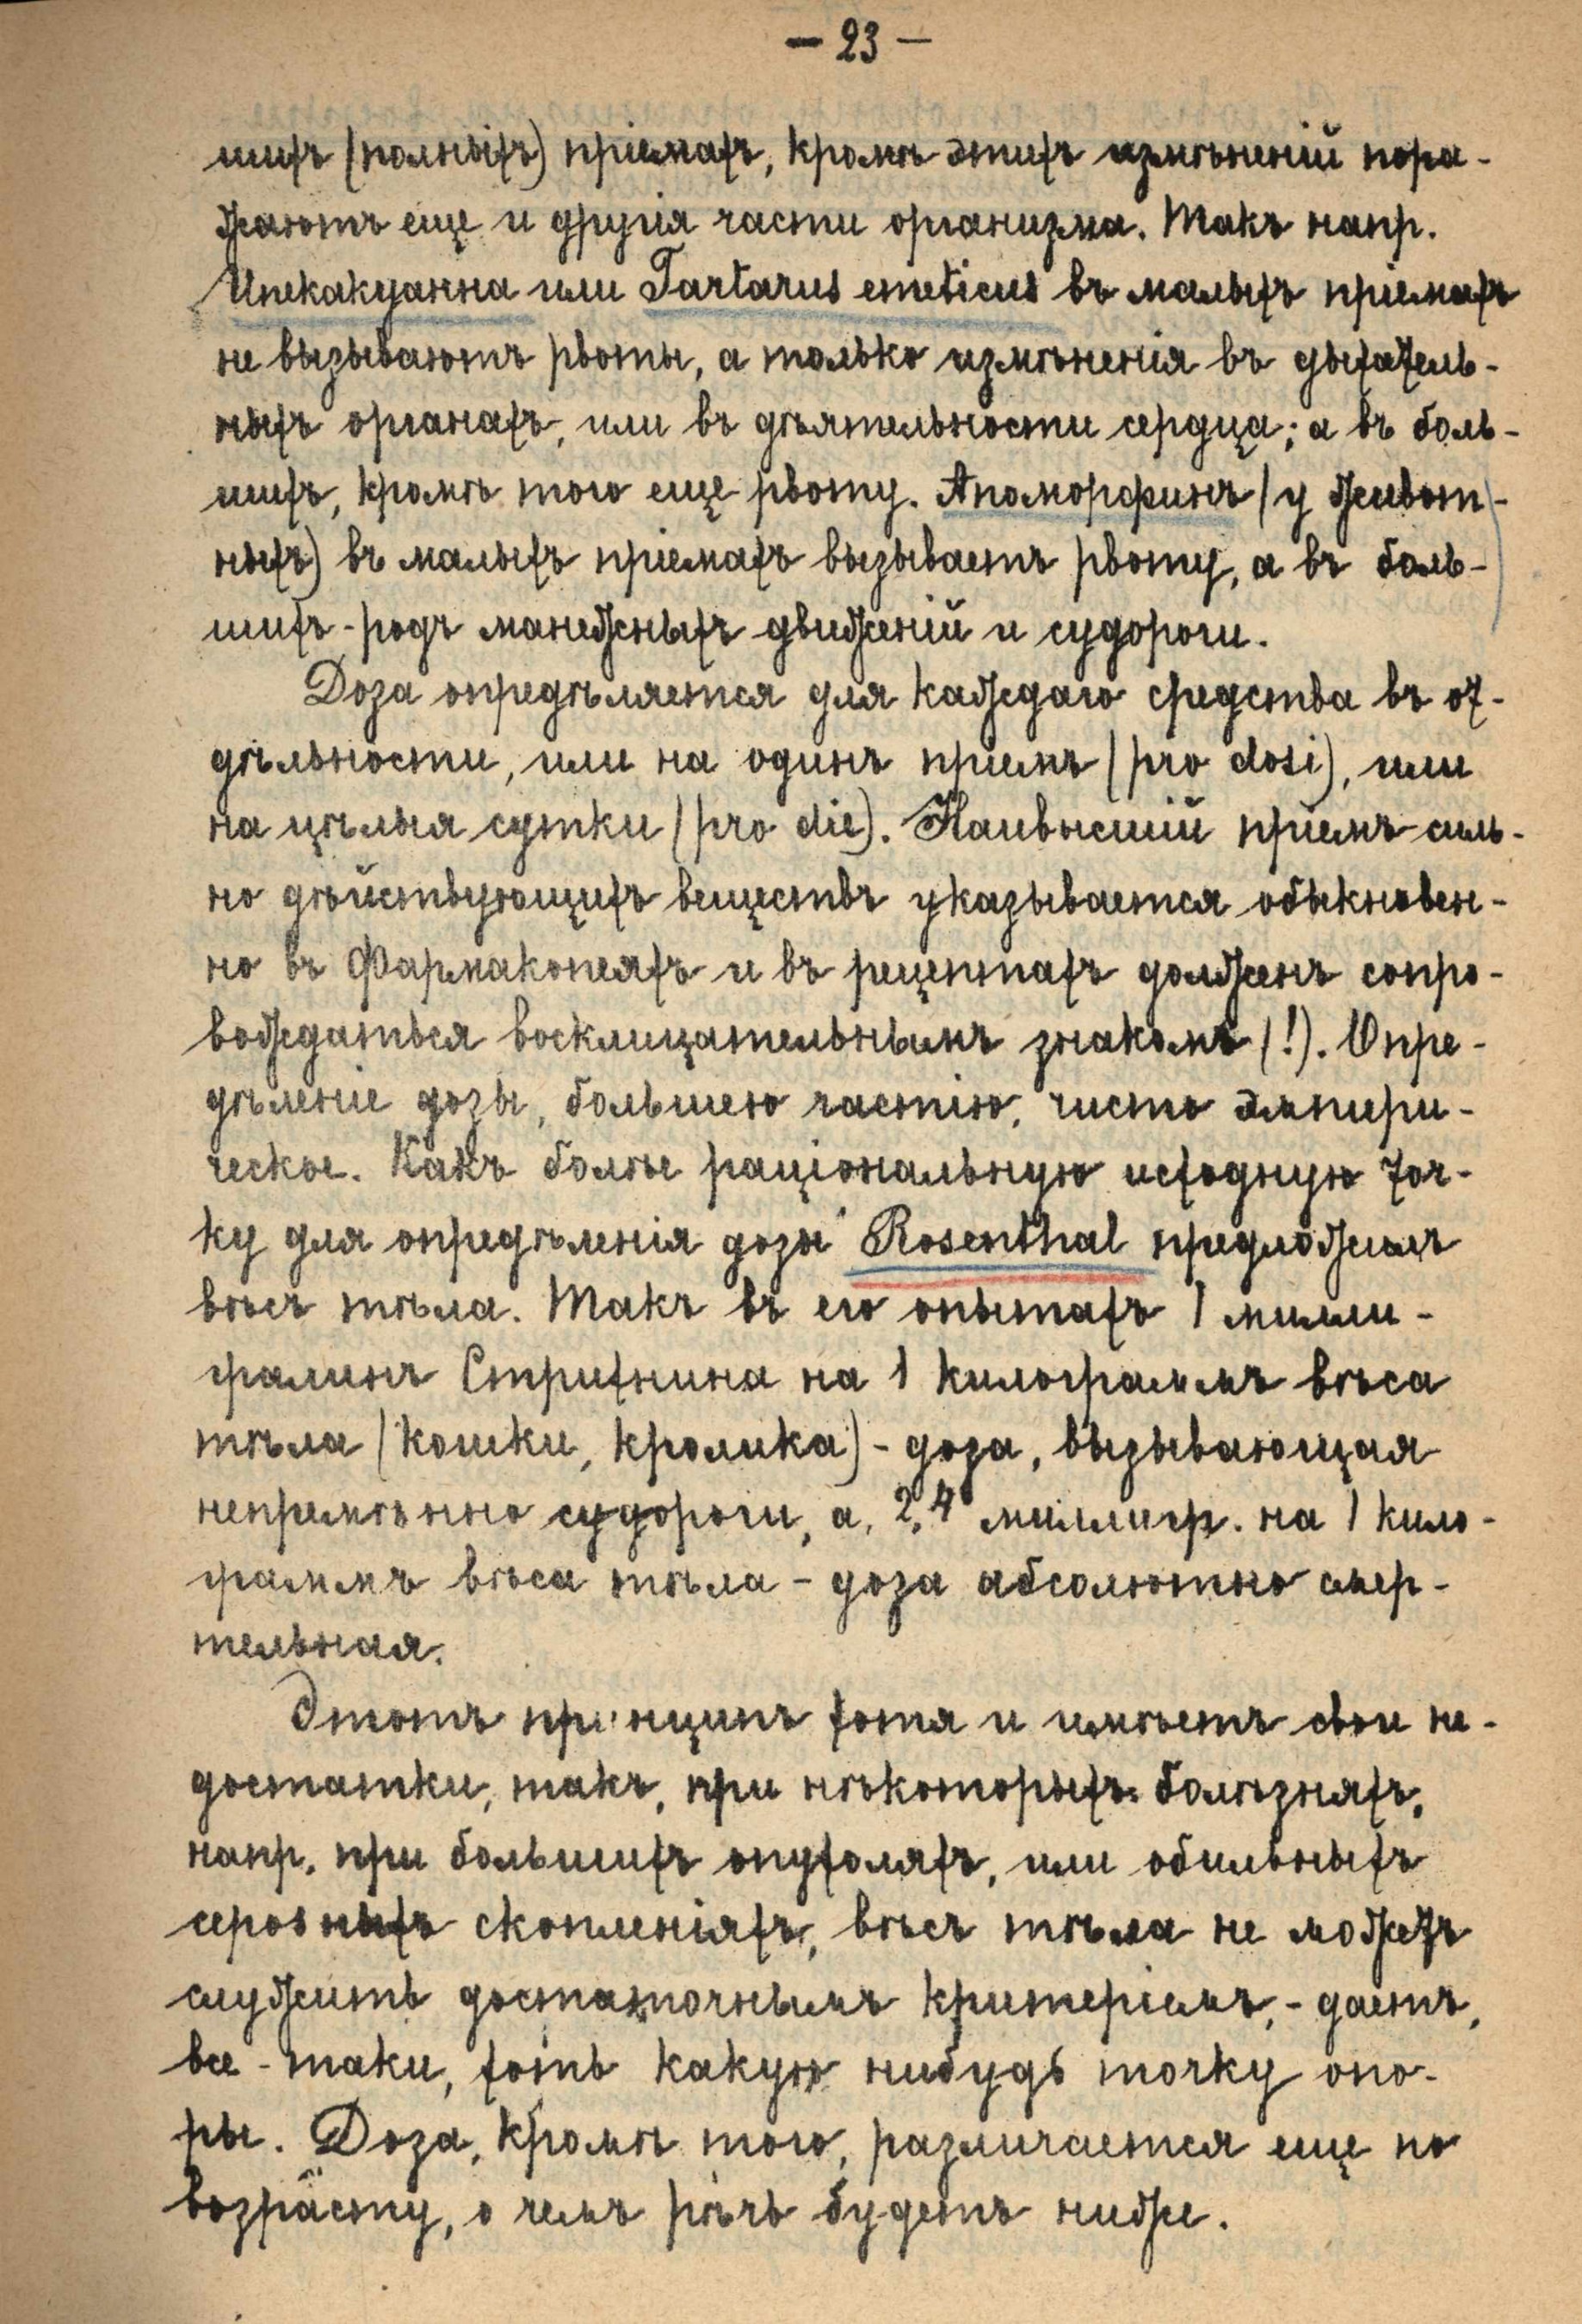 — 23 —
шихъ (полныхъ) пріемахъ, кромѣ этихъ измѣненій пора-
жаютъ еще и другія части организма. Такъ напр.
Ипекакуанна или Tartarus emeticus въ малыхъ пріемахъ
не вызываютъ рвоты, а только измѣненія въ дыхатель-
ныхъ органахъ, или въ дѣятельности сердца; а въ боль-
шихъ, кромѣ того еще рвоту. Апоморфинъ (у живот-
ныхъ) въ малыхъ пріемахъ вызываетъ рвоту, а въ боль-
шихъ - родъ манежныхъ движеній и судороги.
Доза опредѣляется для каждаго средства въ от-
дѣльности, или на одинъ пріемъ (pro dosi), или
на цѣлыя сутки (pro die). Наивысшій пріемъ силь-
но дѣйствующихъ веществъ указывается обыкновен-
но въ Фармакопеяхъ и въ рецептахъ долженъ сопро-
вождаться восклицательнымъ знакомъ (!). Опре-
дѣленіе дозы, большею частію, чисто эмпири-
ческое. Какъ болѣе раціональную исходную точ-
ку для опредѣленія дозы Rosenthal предложилъ
вѣсъ тѣла. Такъ въ его опытахъ 1 милли-
граммъ Стрихнина на 1 килограммъ вѣса
тѣла (кошки, кролика) - доза, вызывающая
непремѣнно судороги, а, 2,4 миллигр. на 1 кило-
граммъ вѣса тѣла - доза абсолютно смер-
тельная.
Этотъ принципъ хотя и имѣетъ свои не-
достатки, такъ, при нѣкоторыхъ болѣзняхъ,
напр. при большихъ опухоляхъ, или обильныхъ
серозныхъ скопленіяхъ, вѣсъ тѣла не можетъ
служить достаточнымъ критеріемъ, - даетъ,
все - таки, хоть какую нибудь точку опо-
ры. Доза, кромѣ того, различается еще по
возрасту, о чемъ рѣчь будетъ ниже.